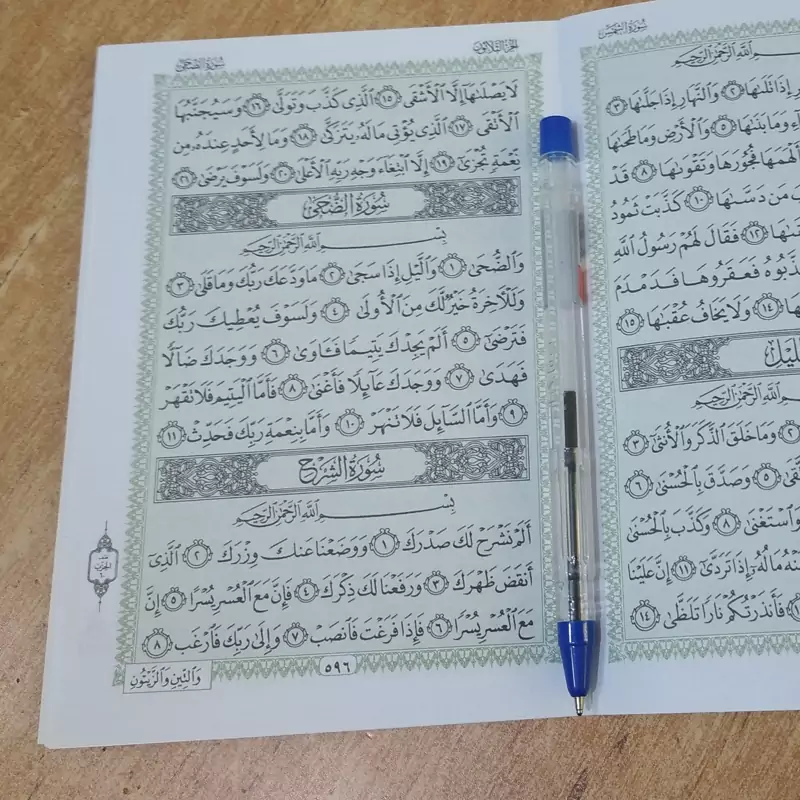 سُورَةُ الشَّمْسِ
ٱللَّهِ ٱلرَّحْمَٰنِ ٱلرَّحِيمِ
إِذَا تَلَىٰهَا ٢ وَٱلنَّهَارِ إِذَا جَلَّىٰهَا ٣
وَمَا بَنَىٰهَا ٥ وَٱلْأَرْضِ وَمَا طَحَىٰهَا
فَأَلْهَمَهَا فُجُورَهَا وَتَقْوَىٰهَا ٨ قَدْ
مَن دَسَّىٰهَا ١٠ كَذَّبَتْ ثَمُودُ
١٢ فَقَالَ لَهُمْ رَسُولُ ٱللَّهِ
فَعَقَرُوهَا فَدَمْدَمَ
١٤ وَلَا يَخَافُ عُقْبَٰهَا ١٥
ٱللَّهِ ٱلرَّحْمَٰنِ ٱلرَّحِيمِ
٢ وَمَا خَلَقَ ٱلذَّكَرَ وَٱلْأُنثَىٰٓ ٣
٥ وَصَدَّقَ بِٱلْحُسْنَىٰ ٦
وَٱسْتَغْنَىٰ ٨ وَكَذَّبَ بِٱلْحُسْنَىٰ
مَالُهُۥٓ إِذَا تَرَدَّىٰٓ ١١ إِنَّ عَلَيْنَا
فَأَنذَرْتُكُمْ نَارًا تَلَظَّىٰ ١٤
الجُزْءُ الثَّلَاثُونَ
سُورَةُ الضُّحَىٰ
لَا يَصْلَىٰهَآ إِلَّا ٱلْأَشْقَى ١٥ ٱلَّذِى كَذَّبَ وَتَوَلَّىٰ ١٦ وَسَيُجَنَّبُهَا
ٱلْأَتْقَى ١٧ ٱلَّذِى يُؤْتِى مَالَهُۥ يَتَزَكَّىٰ ١٨ وَمَا لِأَحَدٍ عِندَهُۥ مِن
نِّعْمَةٍ تُجْزَىٰٓ ١٩ إِلَّا ٱبْتِغَآءَ وَجْهِ رَبِّهِ ٱلْأَعْلَىٰ ٢٠ وَلَسَوْفَ يَرْضَىٰ ٢١
سُورَةُ الضُّحَىٰ
بِسْمِ ٱللَّهِ ٱلرَّحْمَٰنِ ٱلرَّحِيمِ
وَٱلضُّحَىٰ ١ وَٱلَّيْلِ إِذَا سَجَىٰ ٢ مَا وَدَّعَكَ رَبُّكَ وَمَا قَلَىٰ ٣
وَلَلْءَاخِرَةُ خَيْرٌ لَّكَ مِنَ ٱلْأُولَىٰ ٤ وَلَسَوْفَ يُعْطِيكَ رَبُّكَ
فَتَرْضَىٰٓ ٥ أَلَمْ يَجِدْكَ يَتِيمًا فَـَٔاوَىٰ ٦ وَوَجَدَكَ ضَآلًّا
فَهَدَىٰ ٧ وَوَجَدَكَ عَآئِلًا فَأَغْنَىٰ ٨ فَأَمَّا ٱلْيَتِيمَ فَلَا تَقْهَرْ
٩ وَأَمَّا ٱلسَّآئِلَ فَلَا تَنْهَرْ ١٠ وَأَمَّا بِنِعْمَةِ رَبِّكَ فَحَدِّثْ ١١
سُورَةُ الشَّرْحِ
بِسْمِ ٱللَّهِ ٱلرَّحْمَٰنِ ٱلرَّحِيمِ
أَلَمْ نَشْرَحْ لَكَ صَدْرَكَ ١ وَوَضَعْنَا عَنكَ وِزْرَكَ ٢ ٱلَّذِىٓ
أَنقَضَ ظَهْرَكَ ٣ وَرَفَعْنَا لَكَ ذِكْرَكَ ٤ فَإِنَّ مَعَ ٱلْعُسْرِ يُسْرًا ٥ إِنَّ
مَعَ ٱلْعُسْرِ يُسْرًا ٦ فَإِذَا فَرَغْتَ فَٱنصَبْ ٧ وَإِلَىٰ رَبِّكَ فَٱرْغَب ٨
٥٩٦
وَٱلتِّينِ وَٱلزَّيْتُونِ